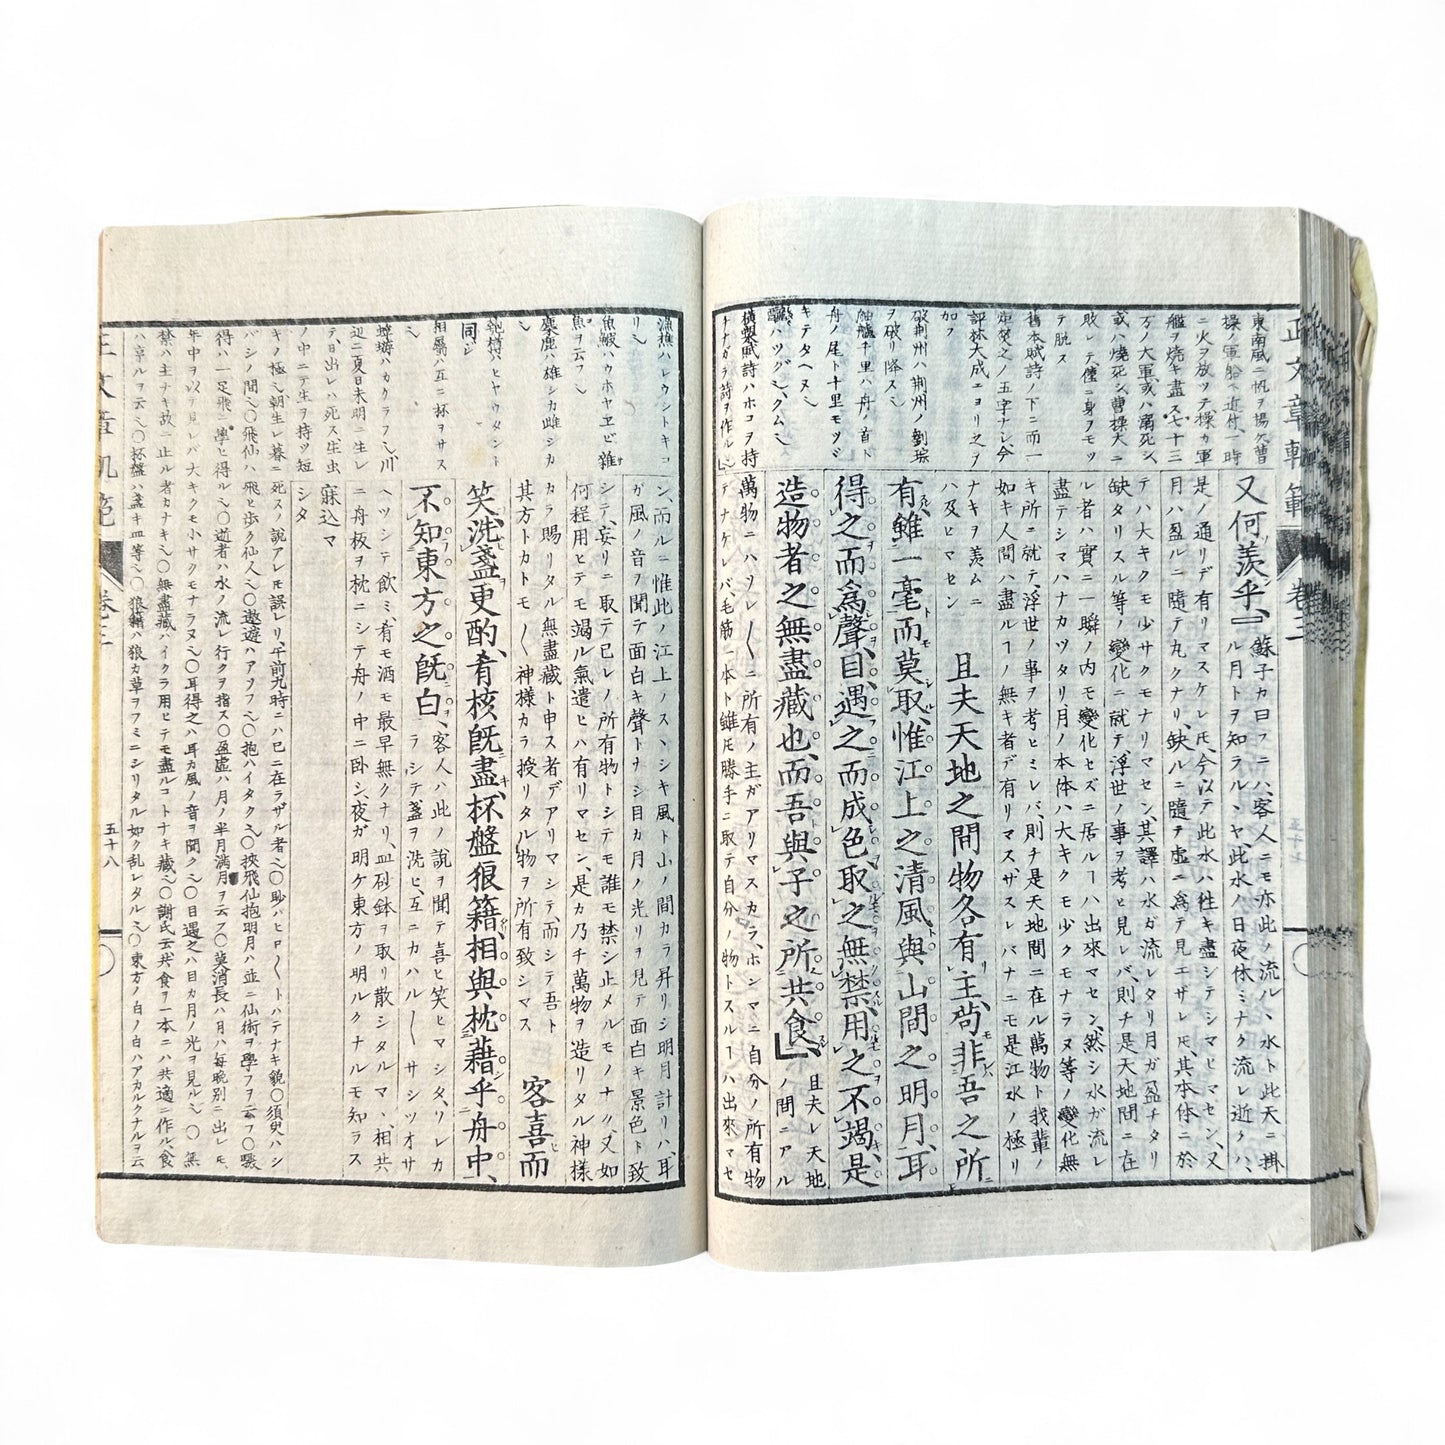 正文章軌範 卷三
東南風ニ帆ヲ揚ケ曹
操ノ軍船ヘ近付一時
ニ火ヲ放ツテ操カ軍
艦ヲ焼キ盡ス七十三
万ノ大軍或ハ溺死シ
或ハ燒死シ曹操大ニ
敗レテ僅ニ身ヲモツ
テ脱ス
舊本賦詩ノ下ニ而一
世ノ五字ナシ今
評林大成ニヨリ之ヲ
加フ
破荊州ハ荊州ノ劉琮
ヲ破リ降ス
舳艫千里ハ舟ノ首ト
舟ノ尾ト十里モツヾ
キテタヘヌ
横槊賦詩ハホコヲ持
ナカラ詩ヲ作ル
又何羨乎
蘇子カ曰フニハ客人ニモ亦此ノ流ルヽ水ト此天ニ掛
ル月トヲ知ラルヽヤ此水ノ日夜休ミナク流レ逝クハ
是ノ通リデ有リマスケレ𪜈今以テ此水ハ往キ盡シテシマヒマセン又
月ハ盈ルニ隨テ丸クナリ缺ルニ隨テ虚ニ爲テ見エザレ𪜈其本体ニ於
テハ大キクモ少サクモナリマセン其譯ハ水ガ流レタリ月ガ盈チタリ
缺ケタリスル等ノ變化ニ就テ浮世ノ事ヲ考ヒ見レバ則チ是天地間ニ在
ル者ハ實ニ一瞬ノ内モ變化セズニ居ルヿハ出來マセン然シ水ガ流レ
盡テシマハナカツタリ月ノ本体ハ大キクモ少クモナラヌ等ノ變化無
キ所ニ就テ浮世ノ事ヲ考ヒミレバ則チ是天地間ニ在ル萬物ト我輩ノ
如キ人間ハ盡ルヿノ無キ者デ有リマスザスレバナニモ是江水ノ極リ
ナキヲ羨ムニ
ハ及ビマセン
且夫天地之間物各有主尚非吾之所
有雖一毫而莫取惟江上之清風與山間之明月耳
得之而爲聲目遇之而成色取之無禁用之不竭是
造物者之無盡藏也而吾與子之所共食
且夫レ天地
ノ間ニアル
萬物ニハソレ〳〵ニ所有ノ主ガアリマスカラホンマニ自分ノ所有物
テナケレバ毛筋一本ト雖𪜈勝手ニ取テ自分ノ物トスルヿハ出來マセ
漁樵ハレウシトキコ
リ
魚鰕ハウホヤヱビ雜
魚ヲ云フ
麋鹿ハ雄シカ雌シカ
匏樽ハヒヤウタント
同シ
相屬ハ互ニ杯ヲサス
蜉蝣ハカクラフ川
辺ニ夏日未明ニ生レ
テ日出レハ死ス生虫
ノ中ニテ生ヲ持ツ短
キノ極ミ朝生レ暮ニ
ン而ルニ惟此ノ江上ノスヽシキ風ト山ノ間カラ昇リシ明月計リハ耳
ガ風ノ音ヲ聞テ面白キ聲トナシ目カ月ノ光リヲ見テ面白キ景色ト致
シテ妄リニ取テ已レノ所有物トシテモ誰モ禁シ止メルモノナク又如
何程用ヒテモ竭ル氣遣ヒハ有リマセン是カ乃チ萬物ヲ造リタル神様
カラ賜リタル無盡藏ト申ス者デアリマシテ而シテ吾ト
其方トカトモ〳〵神様カラ授リタル物ヲ所有致シマス
客喜而
笑洗盞更酌肴核既盡杯盤狼籍相與枕藉乎舟中
不知東方之既白
客人ハ此ノ說ヲ聞テ喜ヒ笑ヒマシタリカ
ラシテ盞ヲ洗ヒ互ニカハル〳〵サシツオサ
ヘツシテ飲ミ肴モ酒モ最早無クナリ皿砂鉢ヲ取リ散シタルマヽ相共
ニ舟板ヲ枕ニシテ舟ノ中ニ卧シ夜ガ明ケ東方ノ明ルクナルモ知ラス
寐込マ
シタ
死スノ說アレ𪜈誤レリ午前九時ニハ已ニ在ラザル者
バシノ間飛仙ハ飛ヒ歩ク仙人遨遊ハアソフ抱ハイタク挾飛仙抱明月ハ並ニ仙術ヲ學フヲ云フ
得ハ一足飛ニ學ヒ得ル逝者ハ水ノ流レ行クヲ指ス盈虚ハ月ノ半月満月ヲ云フ莫消長ハ月ハ毎晩別ニ出レ𪜈
年中ヲ以テ見レバ大キクモ小サクモナラヌ耳得之ハ耳カ風ノ音ヲ聞ク目遇之ハ目カ月ノ光ヲ見ル無
禁ハ主ナキ故ニ止ル者カナキ無盡藏ハイクラ用ヒテモ盡ルコトナキ藏謝氏云共食ハ一本ニハ共適ニ作ル食
ハ享ルヲ云杯盤ハ盞キ皿等狼籍ハ狼カ草ヲフミニシリタル如ク乱レタル東方ノ白ノ白ハアカルクナルヲ云
卷三
五十八